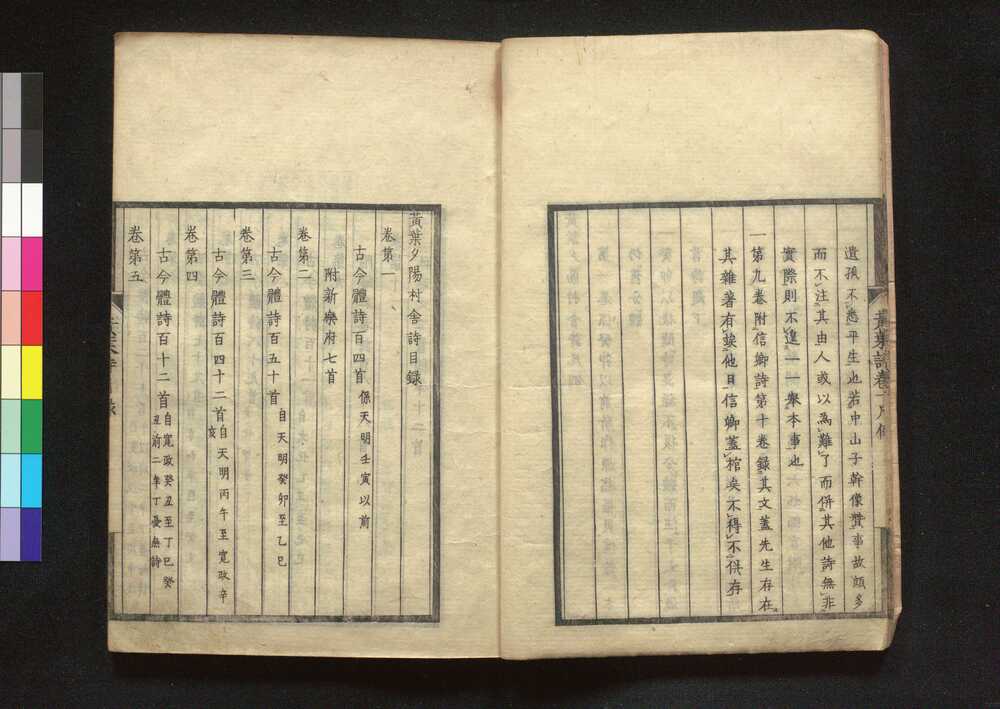 遺孤不悉平生也若中山子幹像贊事故頗多
而不注其由人或以為難了而併其他詩無非
實際則不遑一一舉本事也
一第九卷附信卿詩第十卷錄其文蓋先生存在
其雜著有竢他日信卿蓋棺矣不得不併存
黃葉夕陽村舍詩目錄
卷第一
古今體詩百四首係天明壬寅以前
附新樂府七首
卷第二
古今體詩百五十首自天明癸卯至乙巳
卷第三
古今體詩百四十二首自天明丙午至寬政辛亥
卷第四
古今體詩百十二首自寬政癸丑至丁巳癸丑前二年丁憂無詩
卷第五